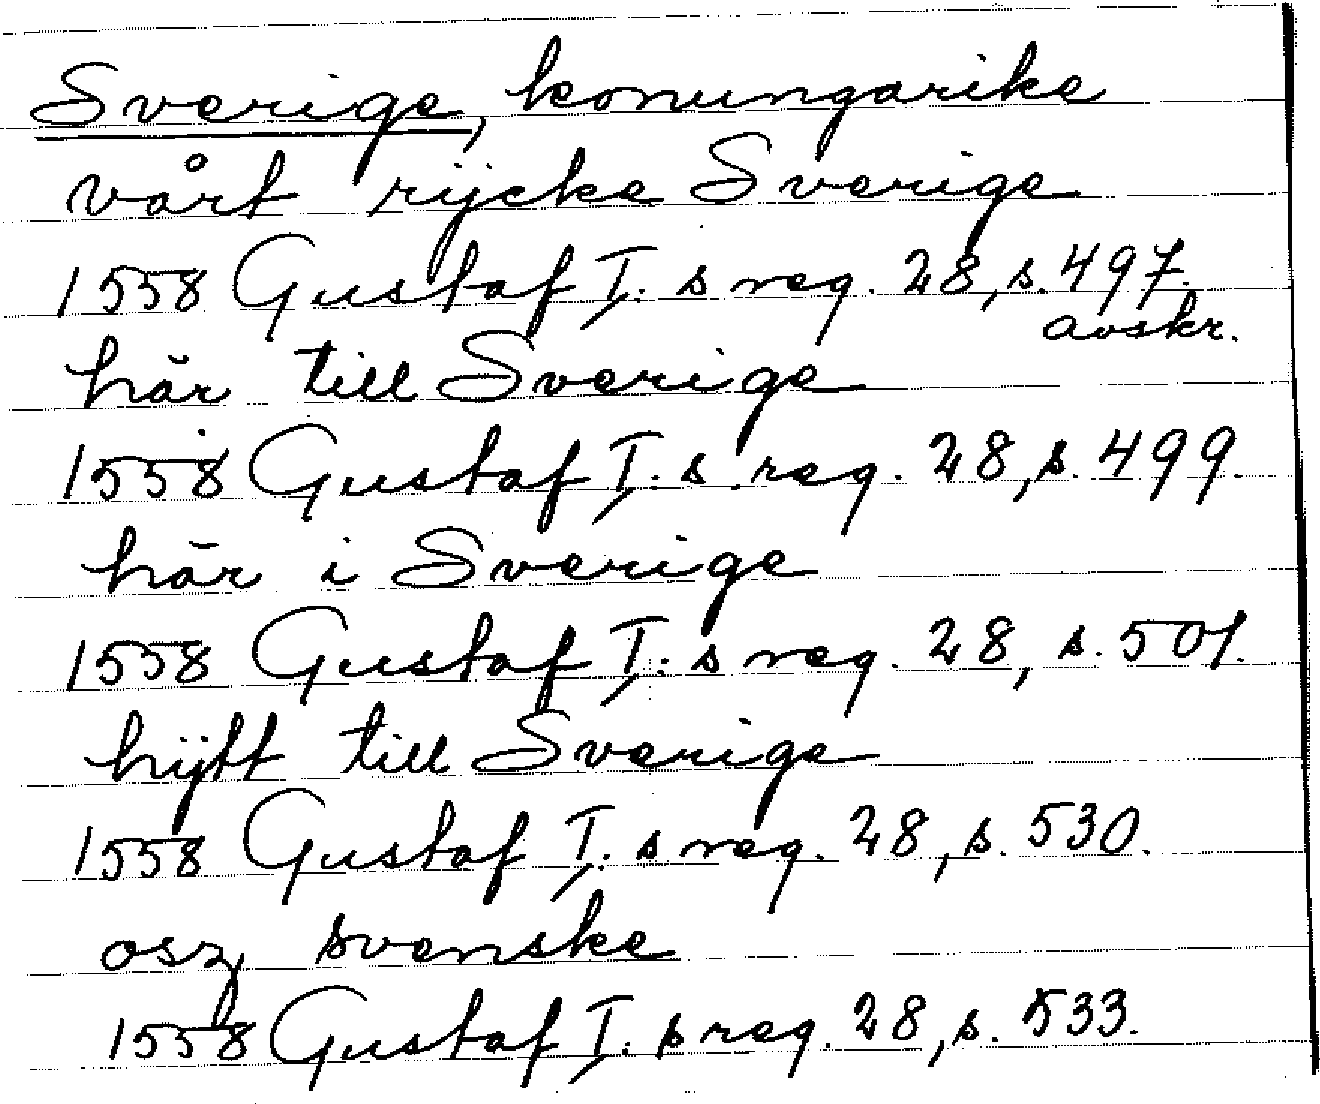 Sverige, konungarike
vårt rijcke Sverige
1558 Gustaf I:s reg. 28, s. 497.
avskr.
här till Sverige
1558 Gustaf I:s reg. 28, s. 499.
här i Sverige
1558 Gustaf I:s reg. 28, s. 501.
hijtt till Sverige
1558 Gustaf I:s reg. 28, s. 530.
osz svenske
1558 Gustaf I:s reg. 28, s. 533.